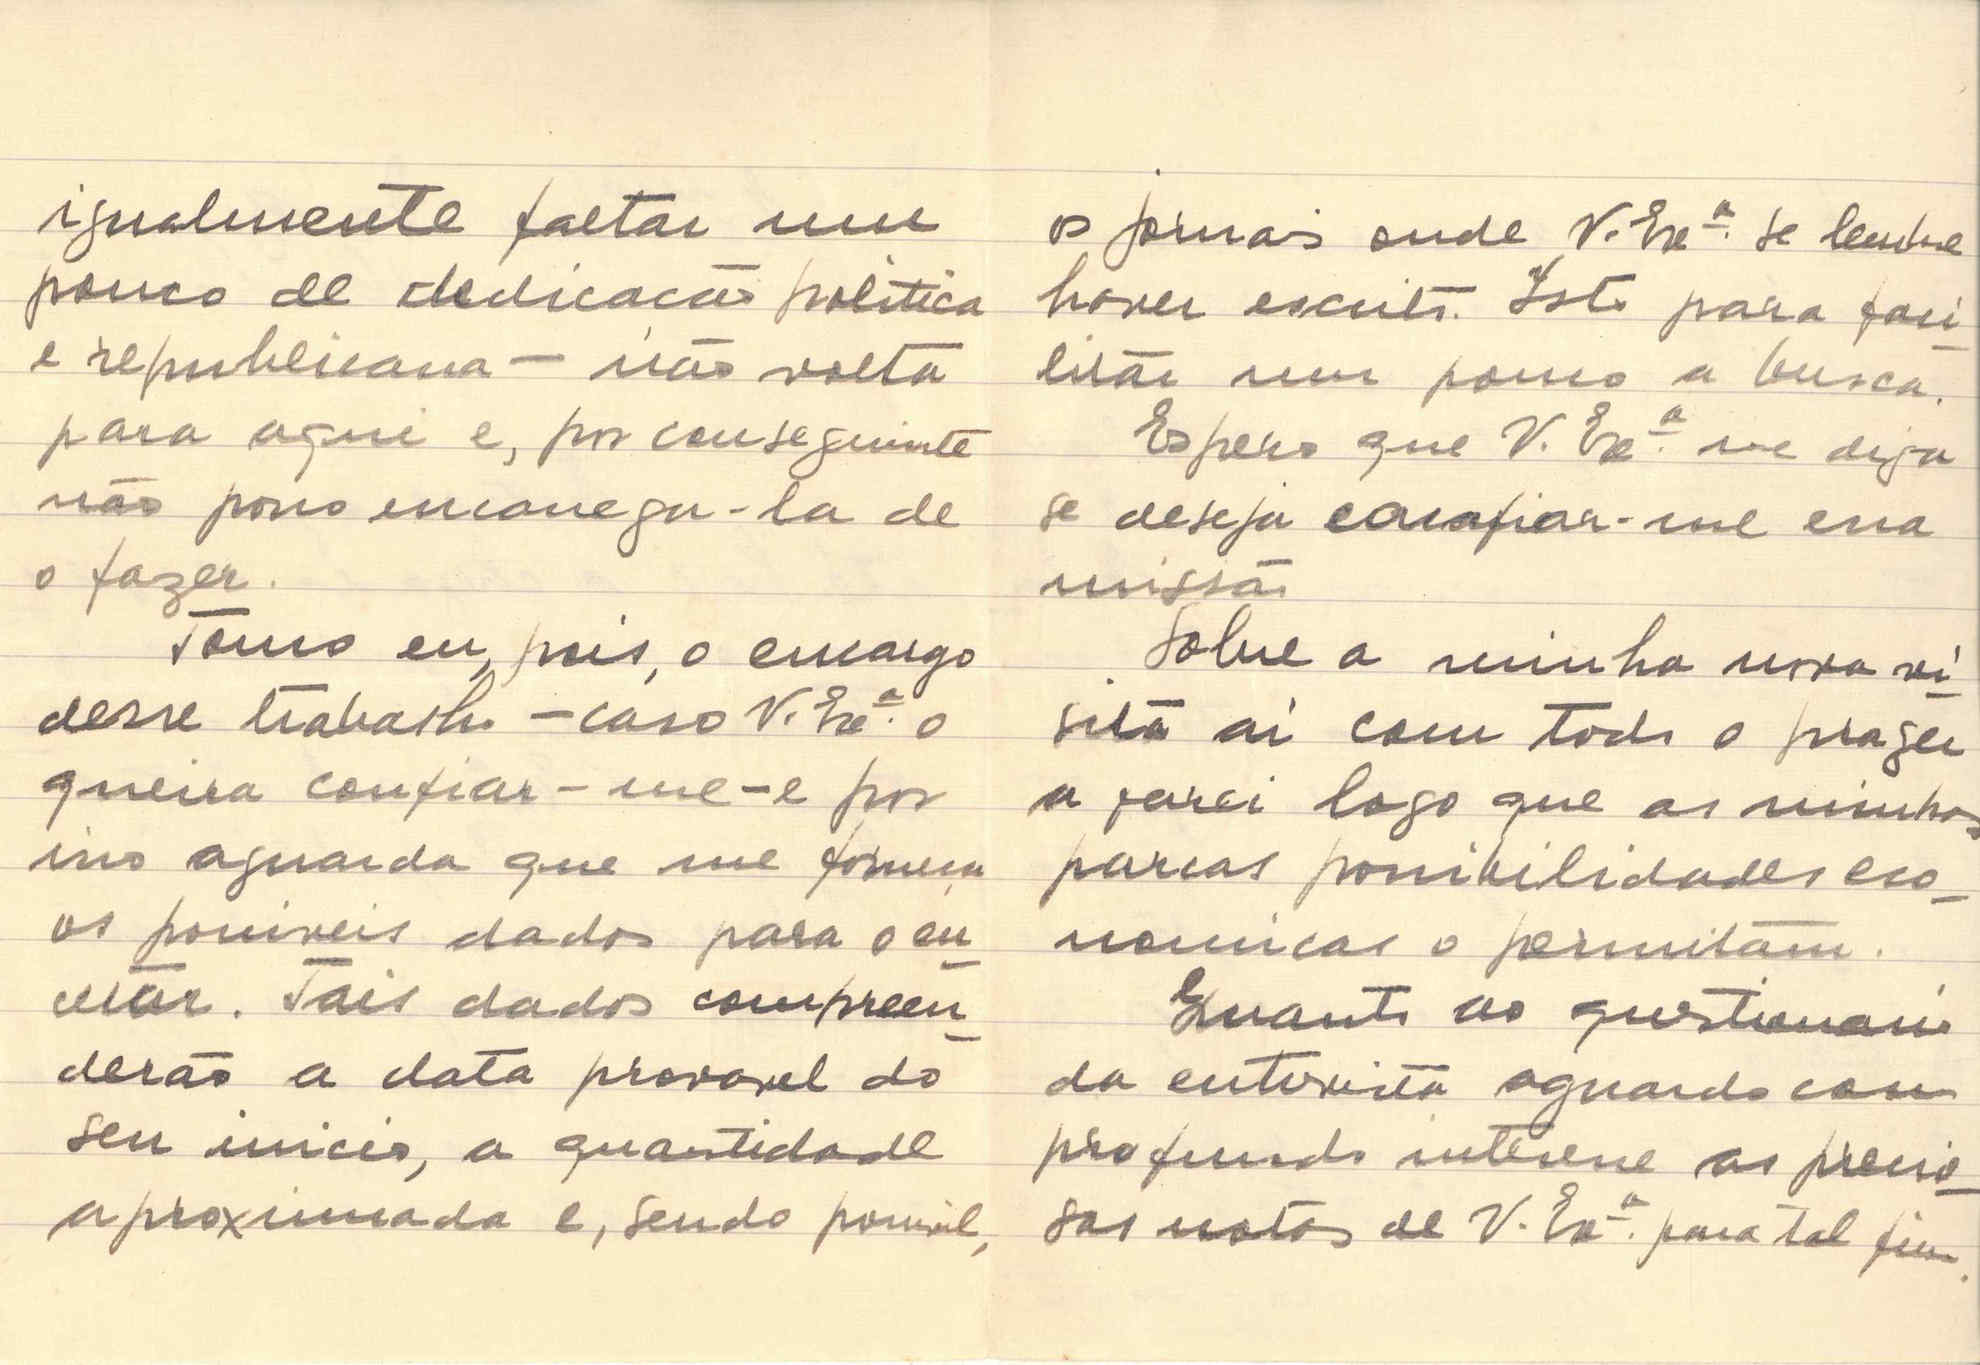 igualmente faltar um
pouco de dedicacão politica
e republicana — não volta
para aqui e, por conseguinte
não posso encarrega-la de
o fazer.
Tomo eu, pois, o encargo
desse trabalho — caso V. Exª. o
queira confiar-me — e por
isso aguarda que me forneça
os possiveis dados para o en
cetar. Tais dados compreen
derão a data provavel do
seu inicio, a quantidade
aproximada e, sendo possivel,
os jornais onde V. Exª. se lembre
haver escrito. Isto para faci
litar um pouco a busca.
Espero que V. Exª. me diga
se deseja confiar-me essa
missão
Sobre a minha nova vi
sita aí com todo o prazer
a farei logo que as minhas
parcas possibilidades eco
nomicas o permitam.
Quanto ao questionario
da entrevista aguardo com
profundo interesse as precio
sas notas de V. Exª. para tal fim.